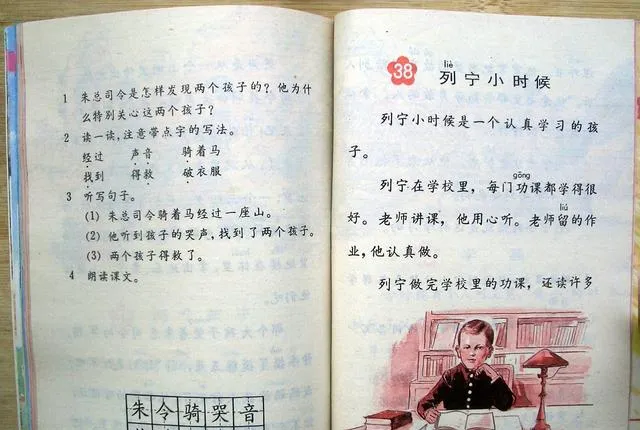 1 朱总司令是怎样发现两个孩子的？他为什
么特别关心这两个孩子？
2 读一读，注意带点字的写法。
经过 声音 骑着马
找到 得救 破衣服
3 听写句子。
(1) 朱总司令骑着马经过一座山。
(2) 他听到孩子的哭声，找到了两个孩子。
(3) 两个孩子得救了。
4 朗读课文。
朱令骑哭音
liè
38 列宁小时候
列宁小时候是一个认真学习的孩
子。
gōng
列宁在学校里，每门功课都学得很
好。老师讲课，他用心听。老师留的作
liú
业，他认真做。
列宁做完学校里的功课，还读许多